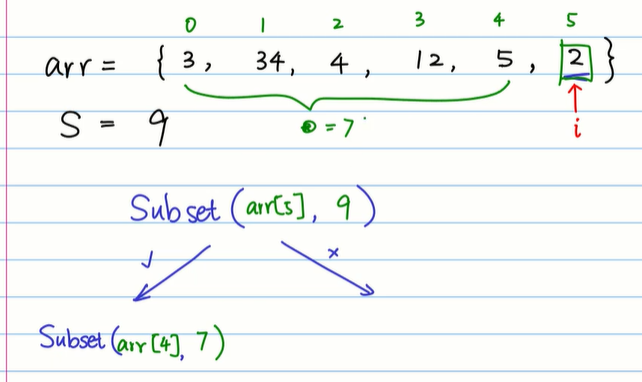 0 1 2 3 4 5
arr = { 3, 34, 4, 12, 5, 2 }
S = 9
= 7
i
Subset (arr[5], 9)
✓ ×
Subset (arr[4], 7)